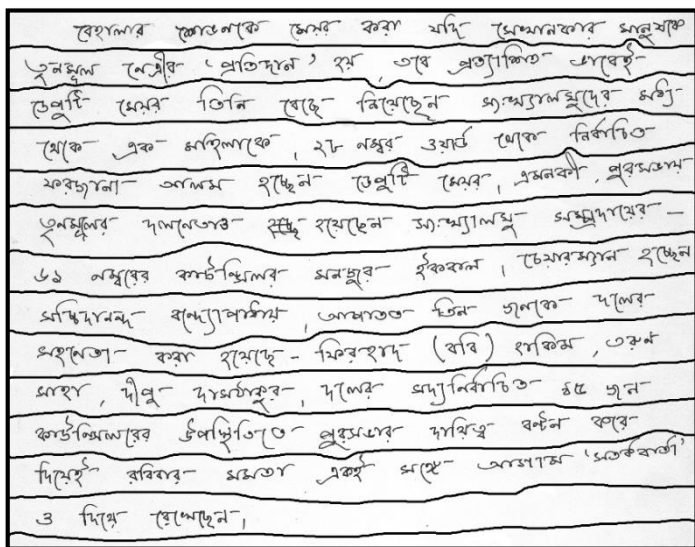 বেহালার শোভনকে মেয়র করা যদি সেখানকার মানুষকে
তৃনমূল নেত্রীর 'প্রতিদান' হয়, তবে প্রত্যাশিত ভাবেই
ডেপুটি মেয়র তিনি বেছে নিয়েছেন সংখ্যালঘুদের মধ্যি
থেকে এক মহিলাকে, ২৮ নম্বর ওয়ার্ড থেকে নির্বাচিত
ফরজানা আলম হচ্ছেন ডেপুটি মেয়র, এমনকী, পুরসভায়
তৃনমূলের দলনেতাও হয়েছেন সংখ্যালঘু সম্প্রদায়ের –
৬১ নম্বরের কাউন্সিলর মনজুর ইকবাল, চেয়ারম্যান হচ্ছেন
সচ্চিদানন্দ বন্দ্যোপাধ্যায়, আপাতত তিন জনকে দলের
সহনেতা করা হয়েছে - ফিরহাদ (ববি) হাকিম, তরুন
সাহা, দীপু দাসঠাকুর, দলের সদ্যনির্বাচিত ৯৫ জন
কাউন্সিলরের উপস্থিতিতে পুরসভার দায়িত্ব বন্টন করে
দিয়েই রবিবার মমতা একই সঙ্গে আগাম 'সতর্কবার্তা'
ও দিয়ে রেখেছেন,